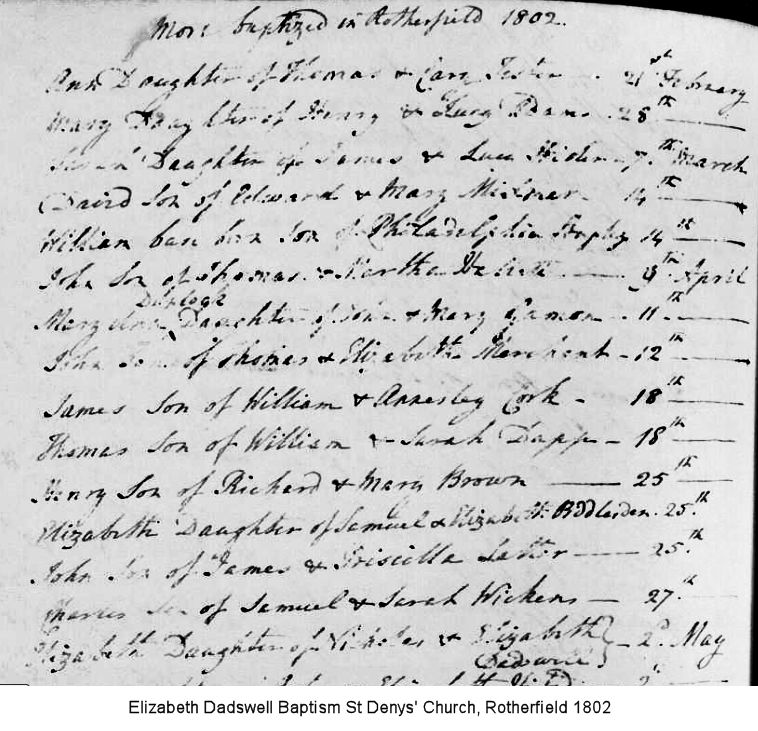 More baptized in Rotherfield 1802.
Ann Daughter of Thomas & Tester - 21st February
Mary Daughter of Henry & Lucy Adams - 28th
Daughter of James & Hider - 7th March
David Son of Edward & Mary Milmer - 14th
William base born Son of Philadelphia 14th
John Son of Thomas & Martha April
Duplock
Mary Ann Daughter of John & Mary Gamon - 11th
John Son of Thomas & Elizabeth Merchant - 12th
James Son of William & Annesley Cork - 18th
Thomas Son of William & Sarah Dapp - 18th
Henry Son of Richard & Mary Brown 25th
Elizabeth Daughter of Samuel & Elizabeth 25th
John Son of James & Priscilla 25th
Charles Son of Samuel & Sarah Wickens 27th
Elizabeth Daughter of Nicholas & Elizabeth } - 2d May
Dadswell
Elizabeth Dadswell Baptism St Denys' Church, Rotherfield 1802